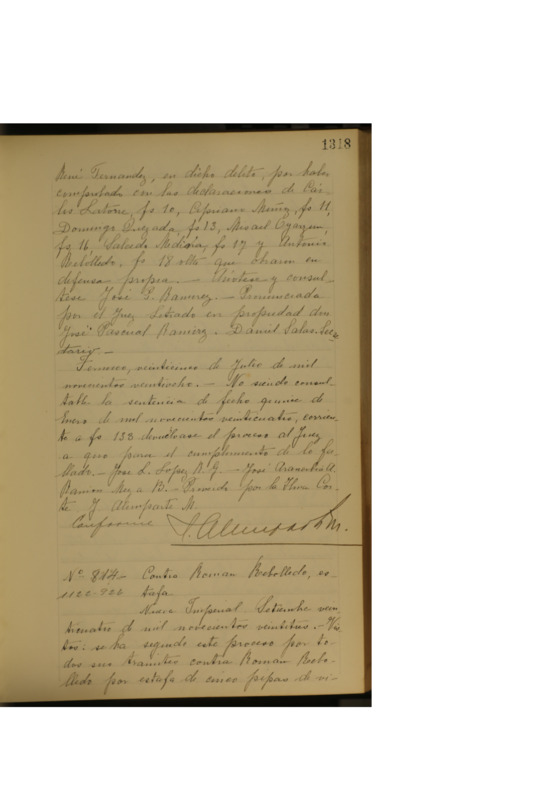 1318
René Fernandez, en dicho delito, por haber
comprobado con las declaraciones de Cár-
los Latorre, fs 10, Cipriano Muñoz, fs 11,
Domingo Quezada, fs 13, Misael Oyarzun,
fs 16, Salcedo Medina, fs 17 y Antonio
Rebolledo, fs 18 vlta que obraron en
defensa propia. — Anótese y consúl-
tese José P. Ramirez. — Pronunciada
por el Juez Letrado en propiedad don
José Pascual Ramirez. Daniel Salas. Sec-
retario —
Temuco, veinticinco de Julio de mil
novecientos veintiocho. — No siendo consul-
table la sentencia de fecha quince de
Enero de mil novecientos veinticuatro, corrien-
te a fs 133 devuélvase el proceso al Juez
a quo para el cumplimiento de lo fa-
llado. — José L. López R. G. — José
Ramon B. — Proveido por la Iltma Cor-
te J. Alemparte M.
Conforme J. Alemparte M.
Nº 814 — Contra Roman Rebolledo, es-
tafa
Nueva Imperial Setiembre vein-
ticuatro de mil novecientos veintitres. — Vis-
tos: se ha seguido este proceso por to-
dos sus tramites contra Roman Rebo-
lledo por estafa de cinco pipas de vi-